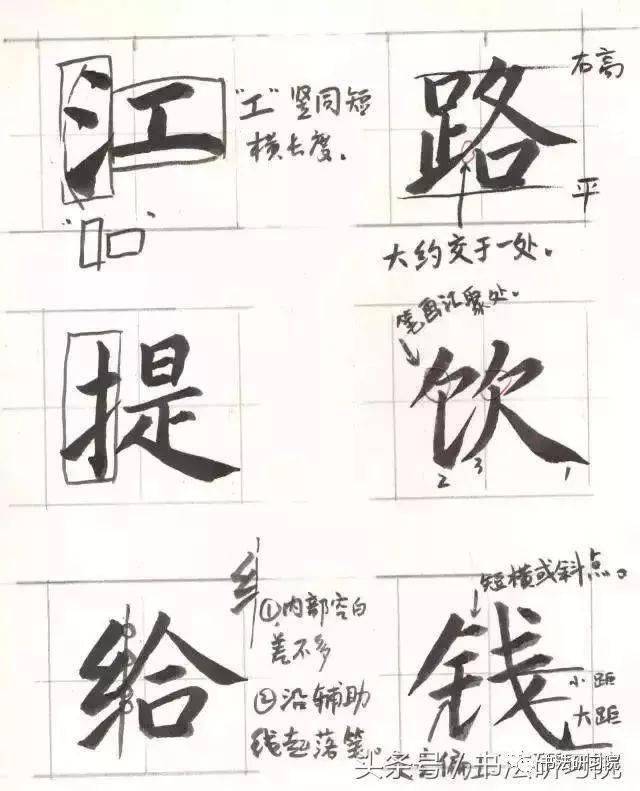 江
"工"竖同短
横长度。
"吅"
路
右高
平
大约交于一处。
提
笔画汇聚处。
饮
2 3 1
给
纟
①内部空白
差不多
②沿辅助
线起落笔。
短横或斜点。
钱
小距
大距
头条号/书法研究院
书法研习院